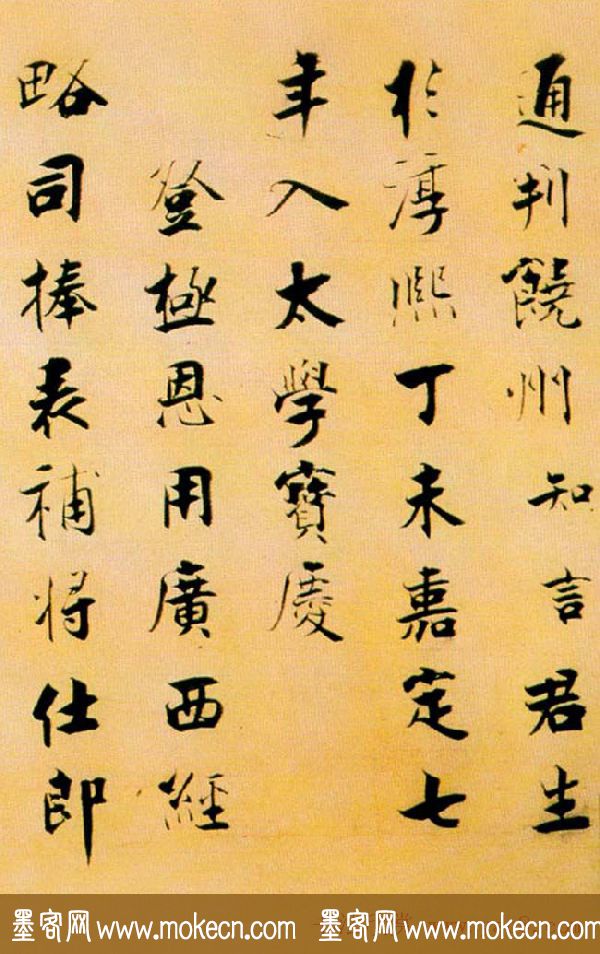 通判饒州知言君生
於淳熙丁未嘉定七
年入太學寶慶
登極恩用廣西經
略司捧表補將仕郎
墨客网 www.mokecn.com 墨客网 www.mokecn.com